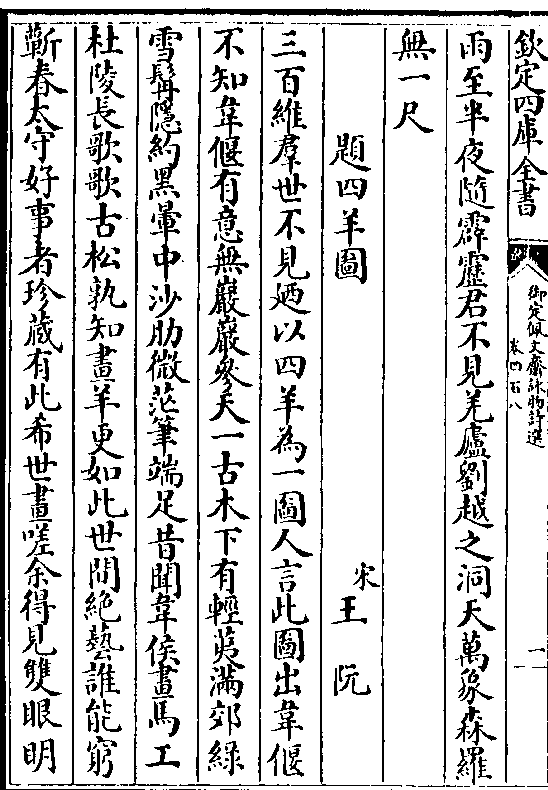 欽定四庫全書
御定佩文齋詠物詩選
卷四百八
雨至半夜隨霹靂君不見羌廬劉越之洞天萬象森羅
無一尺
題四羊圖
宋王阮
三百維羣世不見廼以四羊為一圖人言此圖出韋偃
不知韋偃有意無巖巖參天一古木下有輕莢滿郊綠
雪髯隱約黑暈中沙肋微茫筆端足昔聞韋侯畫馬工
杜陵長歌歌古松孰知畫羊更如此世間絶藝誰能窮
蘄春太守好事者珍藏有此希世畫嗟余得見雙眼明